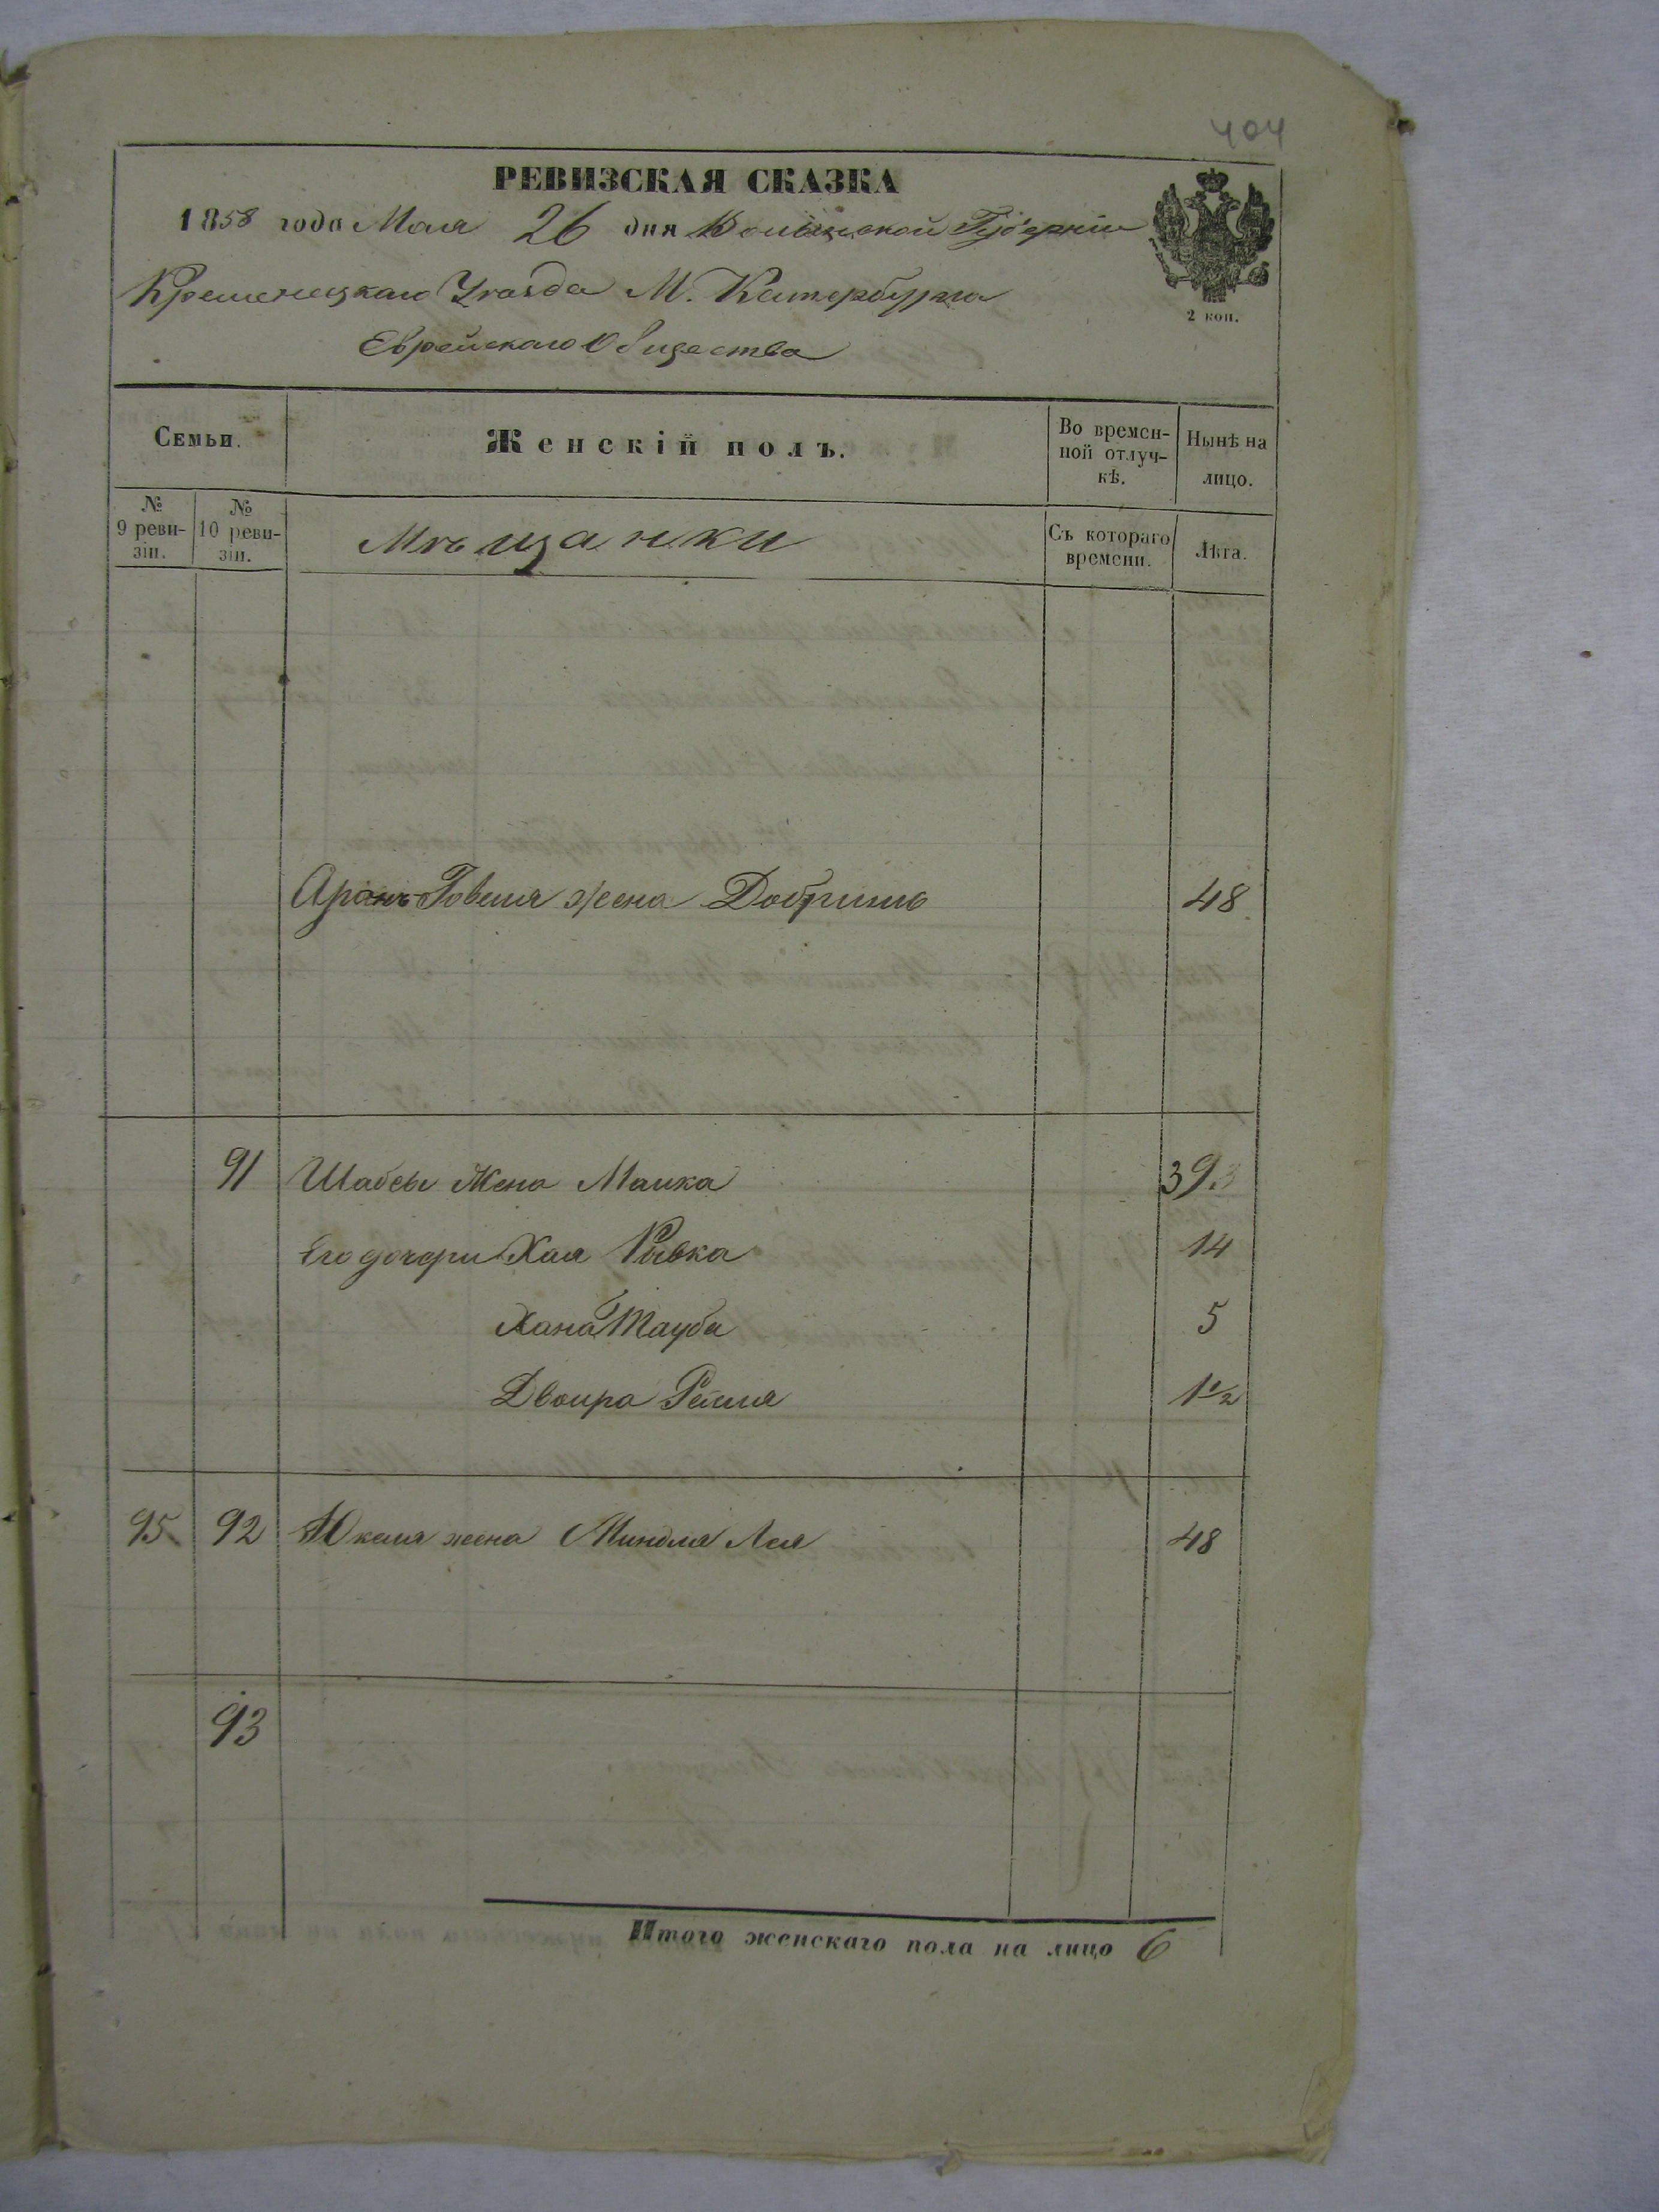 404
РЕВИЗСКАЯ СКАЗКА
1858 года Мая 26 дня Волынской Губерніи
Кременецкаго Уѣзда М. Катербурга
2 коп.
Еврейскаго Общества
Семьи.
Женскій полъ.
Во времен-
ной отлуч-
кѣ.
Нынѣ на
лицо.
№
9 реви-
зіи.
№
10 реви-
зіи.
Мѣщанки
Съ котораго
времени.
Лѣта.
Аронъ-Говшія жена Добрышъ 48
91 Шабсы Жена Малка 39
Его дочери Хая Рывка 14
Хана Тауба 5
Двойра Рейзя 1 1/2
95 92 Юкеля жена Миндля Лея 48
93
Итого женскаго пола на лицо 6